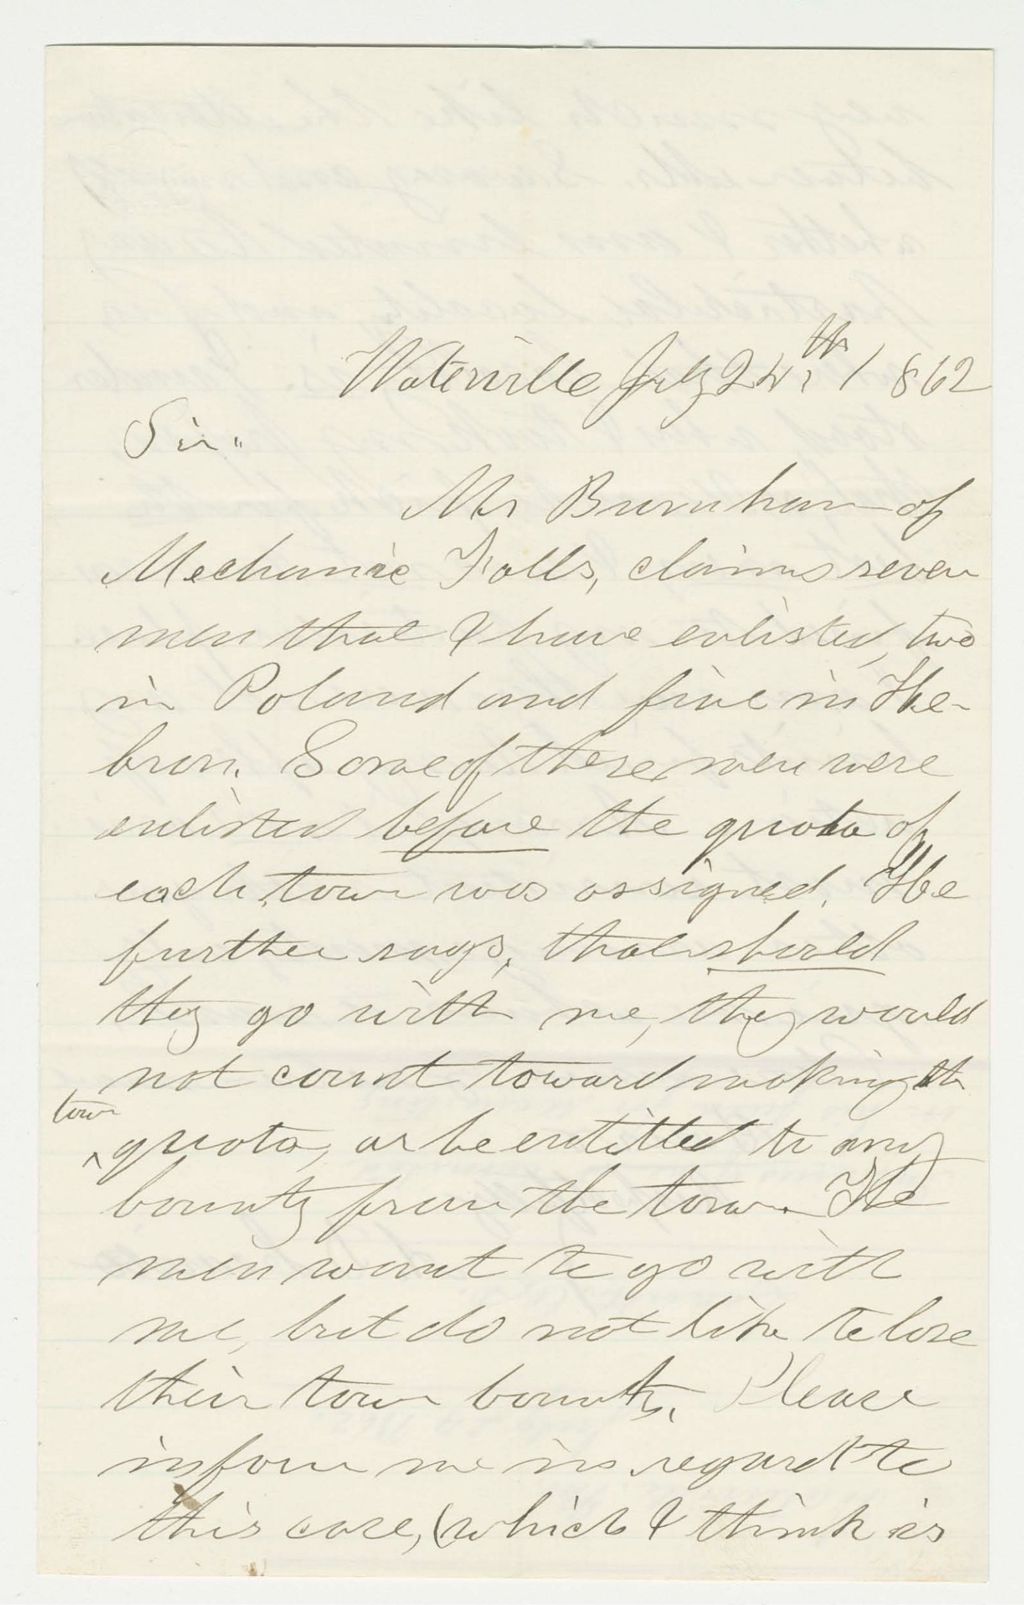 Waterville July 24th, 1862
Sir"
Mr Burnham of
Mechanic Falls, claims seven
men that I have enlisted, two
in Poland and five in He-
bron. Some of these men were
enlisted before the quota of
each town was assigned. He
further says, that should
they go with me, they would
not count toward making the
town
^quota, or be entitled to any
bounty from the town. The
men want to go with
me, but do not like to lose
their town bounty. Please
inform me in regard to
this case, (which I think is